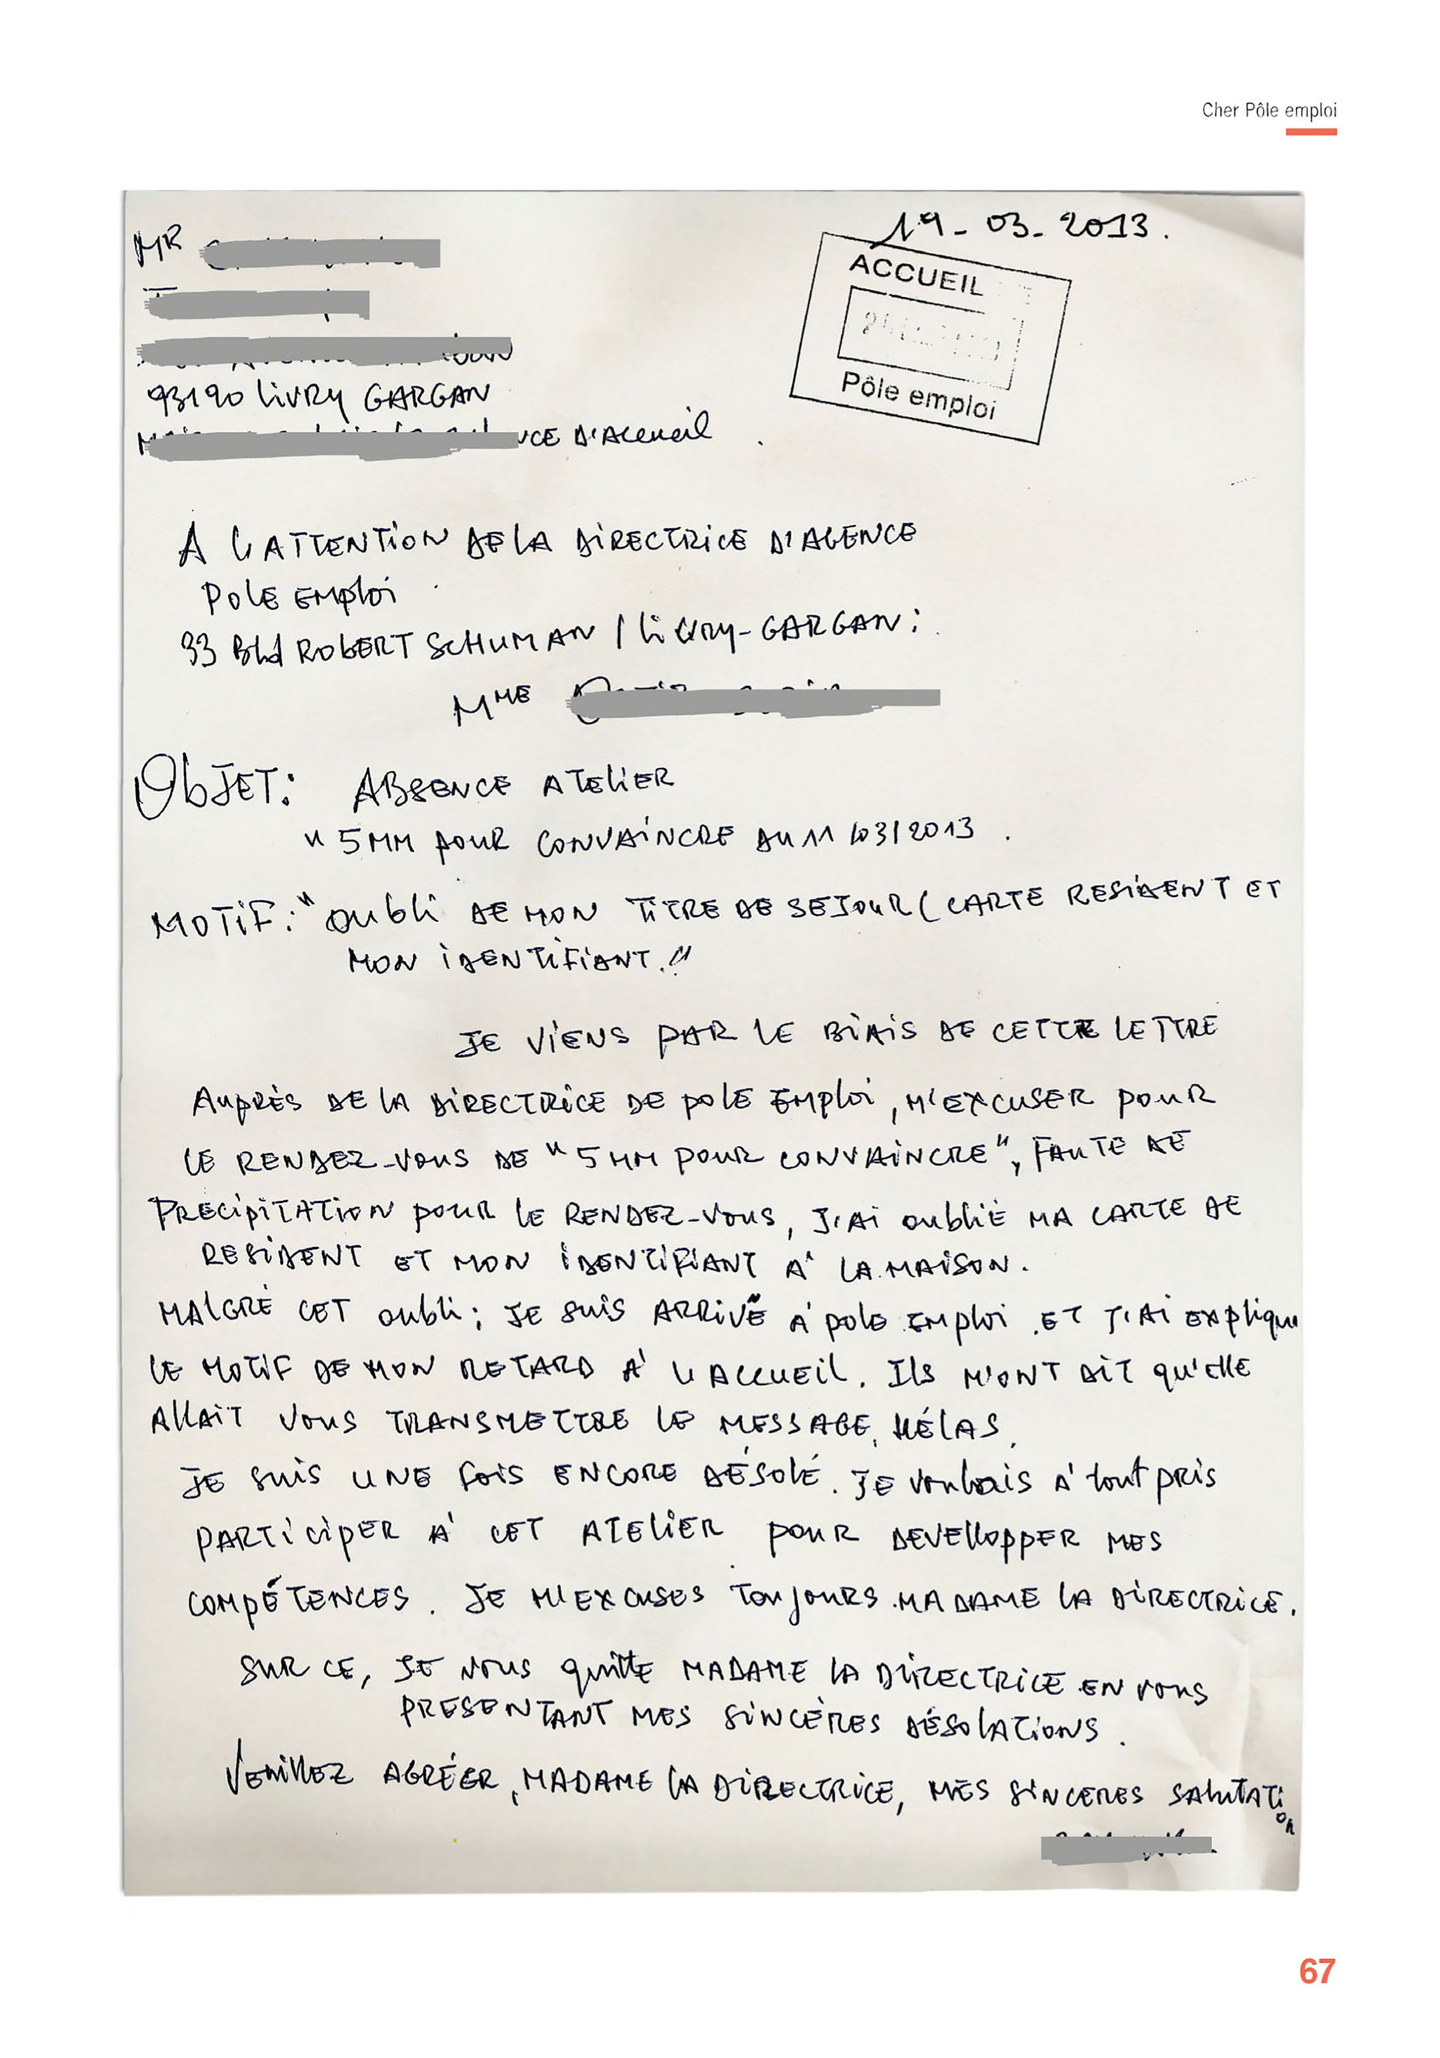 Cher Pôle emploi
19-03-2013.
MR
ACCUEIL
Pôle emploi
93190 LIVRY GARGAN
D'Accueil
A L'ATTENTION DE LA DIRECTRICE D'AGENCE
POLE EMPLOI
33 Bld ROBERT SCHUMAN / LIVRY-GARGAN:
MME
OBJET: ABSENCE ATELIER
" 5MM POUR CONVAINCRE AU 11/03/2013.
MOTIF: "OUBLI DE MON TITRE DE SEJOUR (CARTE RESIDENT ET
MON IDENTIFIANT."
JE VIENS PAR LE BIAIS DE CETTE LETTRE
AUPRÈS DE LA DIRECTRICE DE POLE EMPLOI, M'EXCUSER POUR
LE RENDEZ-VOUS DE "5MM POUR CONVAINCRE", FAUTE DE
PRECIPITATION POUR LE RENDEZ-VOUS, J'AI OUBLIÉ MA CARTE DE
RESIDENT ET MON IDENTIFIANT À LA MAISON.
MALGRÉ CET OUBLI; JE SUIS ARRIVÉ À POLE EMPLOI ET J'AI EXPLIQUE
LE MOTIF DE MON RETARD À L'ACCUEIL. ILS M'ONT DIT QU'ELLE
ALLAIT VOUS TRANSMETTRE LE MESSAGE, HÉLAS,
JE SUIS UNE FOIS ENCORE DÉSOLÉ. JE VOULAIS À TOUT PRIS
PARTICIPER À CET ATELIER POUR DEVELLOPPER MES
COMPÉTENCES. JE M'EXCUSES TOUJOURS MADAME LA DIRECTRICE.
SUR CE, JE VOUS QUITTE MADAME LA DIRECTRICE EN VOUS
PRESENTANT MES SINCÈRES DÉSOLATIONS.
VEUILLEZ AGRÉER, MADAME LA DIRECTRICE, MES SINCERES SALUTATION
67